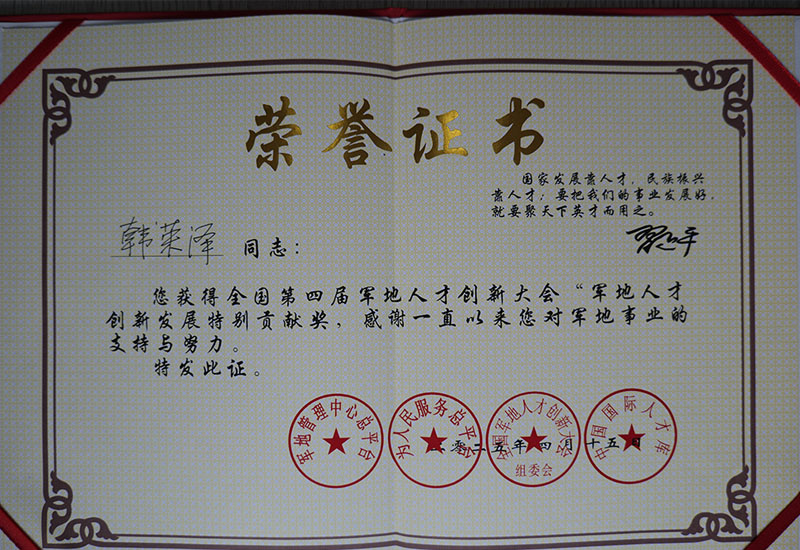 荣誉证书
国家发展靠人才，民族振兴
靠人才；要把我们的事业发展好，
就要聚天下英才而用之。
习近平
韩荣泽 同志：
您获得全国第四届军地人才创新大会“军地人才
创新发展特别贡献奖，感谢一直以来您对军地事业的
支持与努力。
特发此证。
军地管理中心总平台
为人民服务总平台
全国军地人才创新大会
组委会
中国国际人才库
二零二五年四月十五日